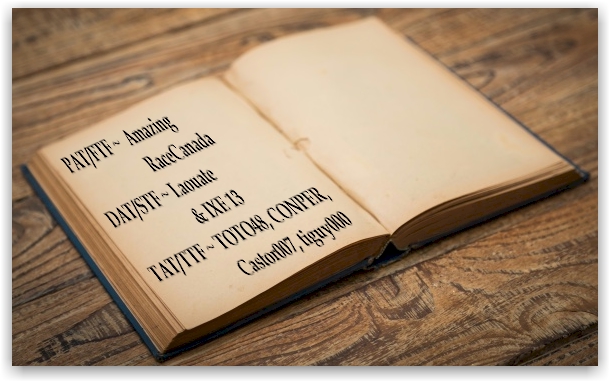 PAT/FTF ~ Amazing
RaceCanada
DAT/STF ~ Laouate
& IXE 13
TAT/TTF ~ TOTO48, CONPER,
Castor007, tiguy000